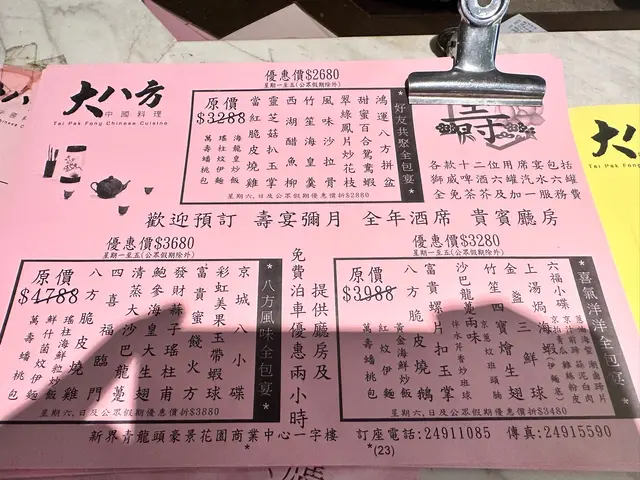 大八方
中國料理
Tai Pak Fong Chinese Cuisine
優惠價$2680
星期一至五(公眾假期除外)
*好友共聚全包宴*
鴻運八方拼盆
甜蜜百合鴛鴦蝦
翠綠鳳片炒花枝
風味沙拉骨
竹笙海皇羹
西湖醋魚柳
靈芝菇扒玉掌
當紅脆皮燒雞
瑤柱皇炒飯
海龍皇伊麵
萬壽蟠桃包
原價
$3288
星期六,日及公眾假期優惠價折$2880
各款十二位用席宴包括
獅威啤酒六罐汽水六罐
全免茶芥及加一服務費
歡迎預訂 壽宴彌月 全年酒席 貴賓廳房
優惠價$3680
星期一至五(公眾假期除外)
*八方風味全包宴*
京城八小碟
彩虹美果玉帶蝦球
富貴蜜餞火方
發財蒜子瑤柱甫
鮑參海皇大生翅
清蒸大沙巴龍躉
四喜福臨門
八方脆皮燒雞
瑤柱海鮮粒炒飯
鮮什菌炆伊麵
萬壽蟠桃包
原價
$4788
星期六,日及公眾假期優惠價折$3880
免費泊車優惠兩小時
提供廳房及
優惠價$3280
星期一至五(公眾假期除外)
*喜氣洋洋全包宴*
六福小碟
上湯焗海蝦
金盞三鮮球
竹笙四寶燴生翅
沙巴龍躉兩味
富貴螺片扣玉掌
八方脆皮燒鵝
黃金海鮮炒飯
紅炆伊麵
萬壽蟠桃包
原價
$3988
星期六,日及公眾假期優惠價折$3480
新界青龍頭豪景花園商業中心一字樓 訂座電話:24911085 傳真:24915590
*
*(23)